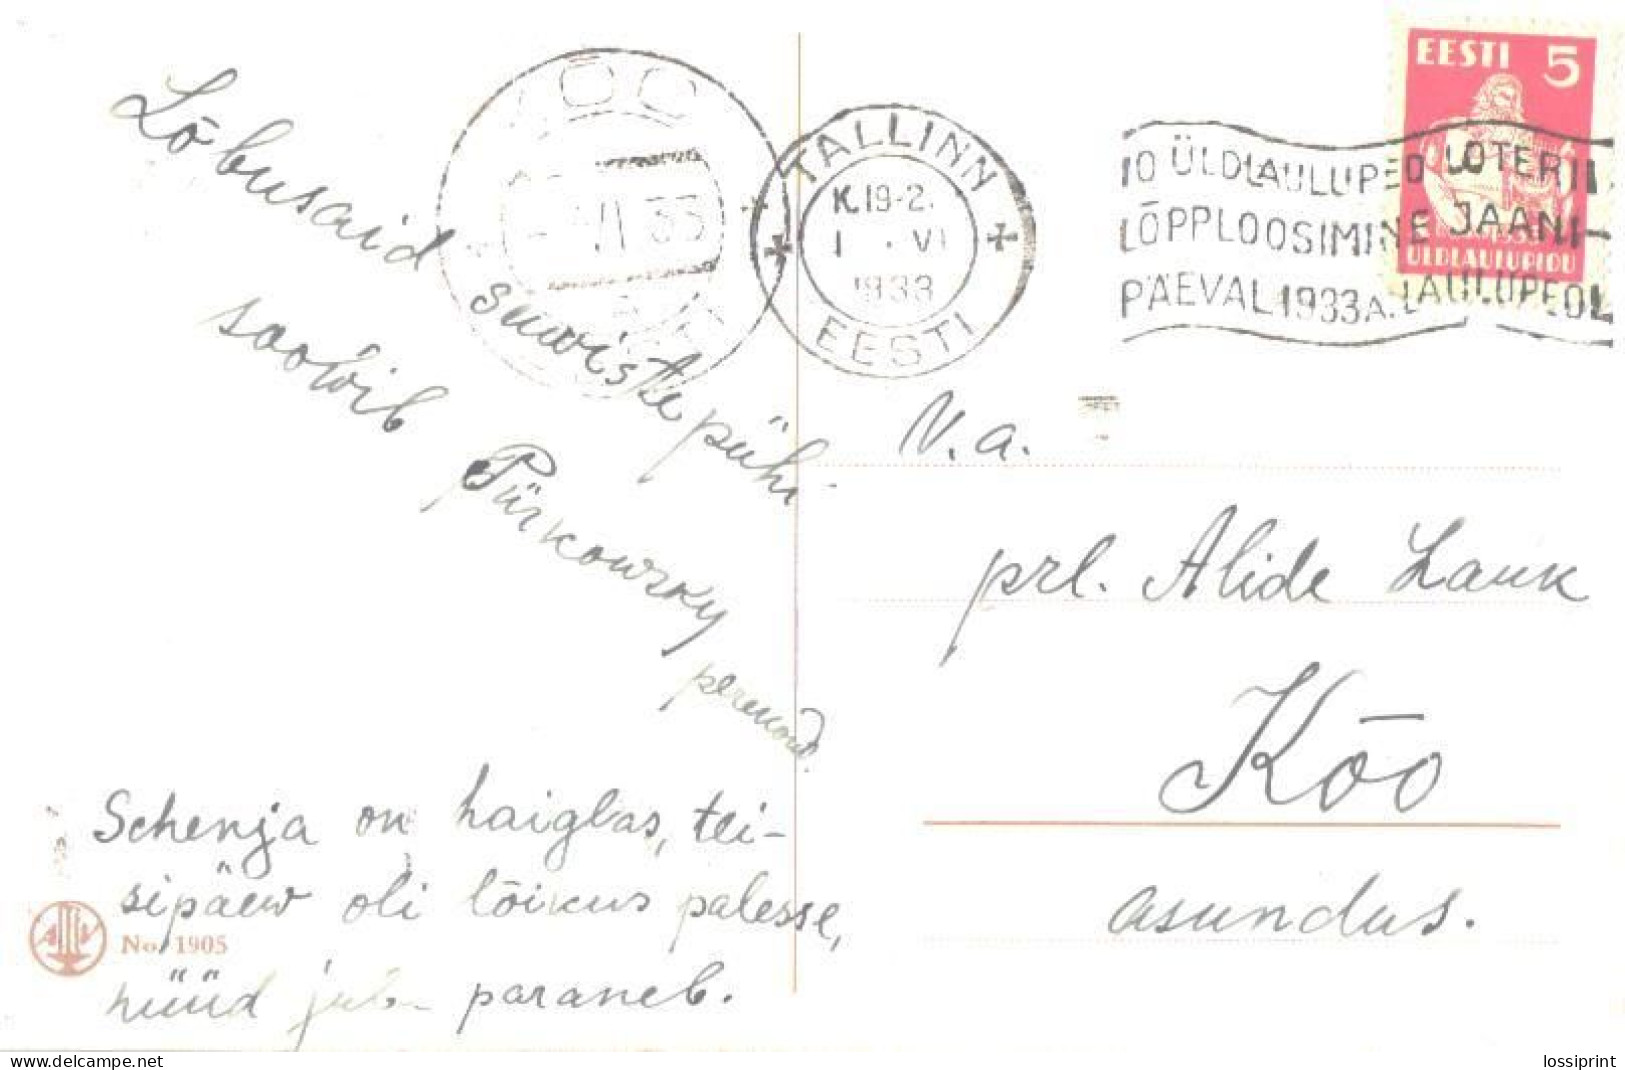 Lõbusaid suwistepühi
soowib Pürkowsky
perekond.
Schenja on haiglas, tei-
sipäew oli lõikus palesse,
nüüd juba paraneb.
No. 1905
KÕO
VI 33
TALLINN
K.19-2
1 . VI
1933
EESTI
10 ÜLDLAULUPEO LOTERII
LÕPPLOOSIMINE JAANI-
PÄEVAL 1933 A. LAULUPEOL
EESTI 5
1933
ÜLDLAULUPIDU
V. a.
prl. Alide Lauk
Kõo
asundus.
delcampe.net
lossiprint